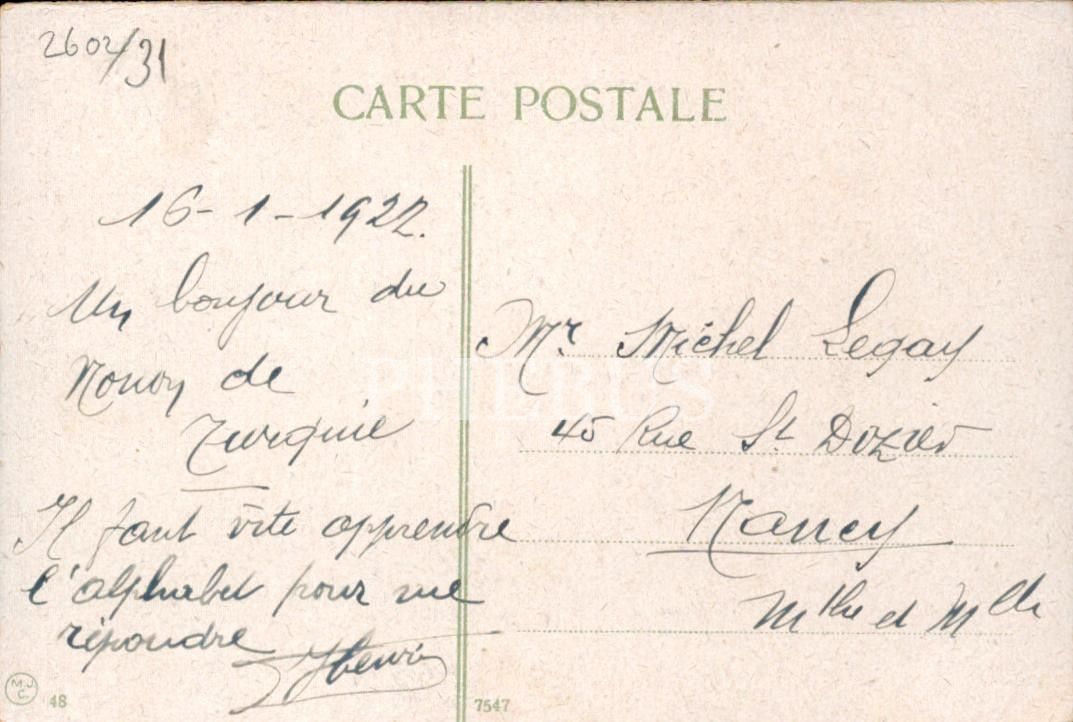 2602/31
CARTE POSTALE
16-1-1922.
Un bonjour du
Nonon de
Turquie
Il faut vite apprendre
l'alphabet pour me
répondre
Henri
Mr. Michel Legay
45 Rue St Dizier
Nancy
Mthe et Mlle
PHEBUS
M.J.C.
48
7547